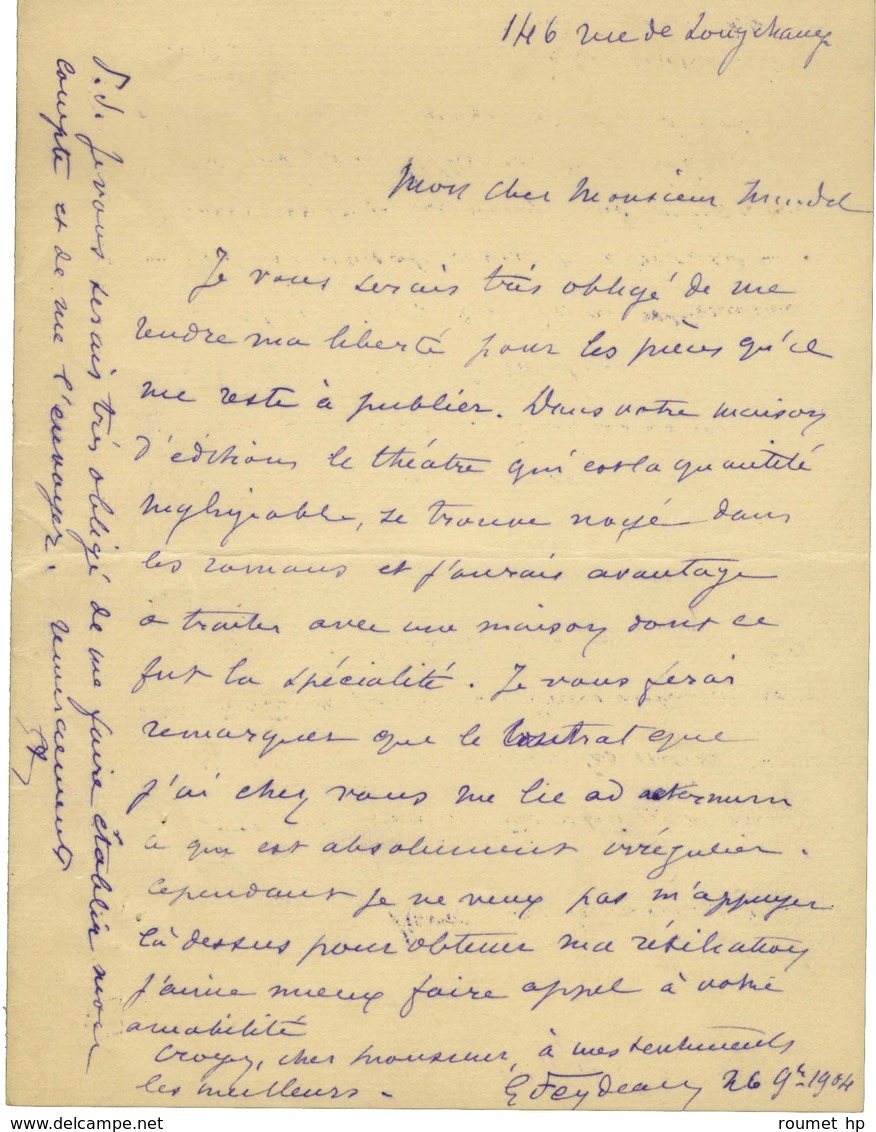 146 rue de Longchamp
Mon cher Monsieur
Je vous serais très obligé de me
rendre ma liberté pour les pièces qu'il
me reste à publier. Dans votre maison
d'éditions le théâtre qui est la quantité
négligeable, se trouve noyé dans
les romans et j'aurais avantage
à traiter avec une maison dont ce
fut la spécialité. Je vous ferai
remarquer que le contrat que
j'ai chez vous me lie ad aeternum
ce qui est absolument irrégulier.
Cependant je ne veux pas m'appuyer
là dessus pour obtenir ma résiliation
j'aime mieux faire appel à votre
amabilité
Croyez, cher monsieur, à mes sentiments
les meilleurs. G Feydeau 26 9re 1904
P.S. Je vous serais très obligé de me faire établir mon
compte et de me l'envoyer. remerciements
roumet hp